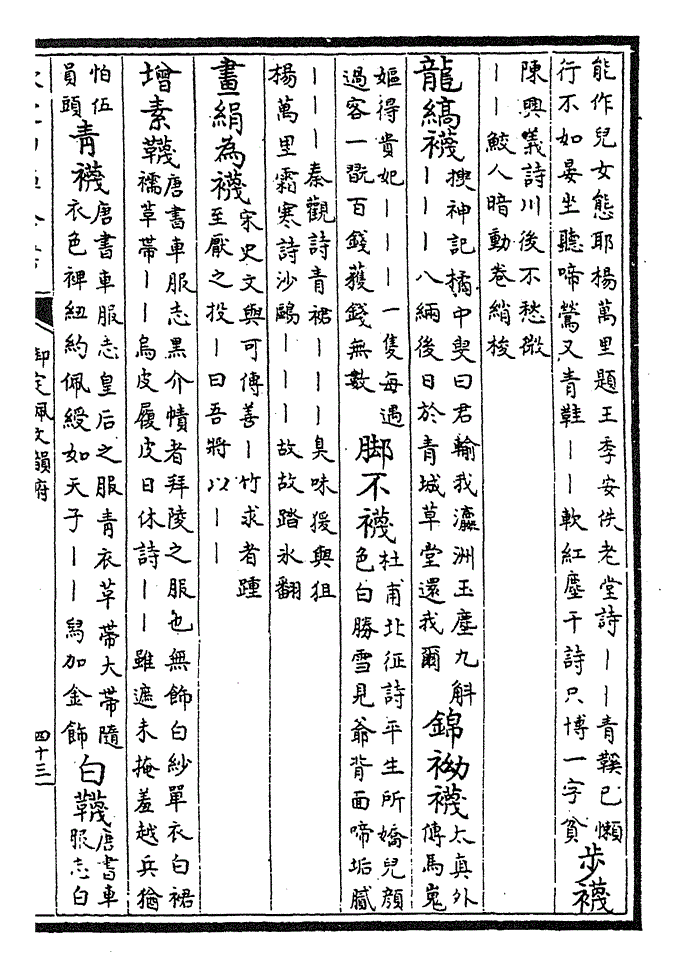 能作兒女態耶楊萬里題王季安佚老堂詩丨丨青鞵已懶
行不如晏坐聽啼鶯又青鞋丨丨軟紅塵千詩只博一字貧
步襪
陳興義詩川後不愁微
丨丨鮫人暗動卷綃梭
龍縞襪
搜神記橘中叟曰君輸我瀛洲玉塵九斛
丨丨丨八緉後日於青城草堂還我爾
錦袎襪
太真外
傳馬嵬
嫗得貴妃丨丨丨一隻每遇
過客一翫百錢獲錢無數
脚不襪
杜甫北征詩平生所嬌兒顏
色白勝雪見爺背面啼垢膩
丨丨丨秦觀詩青裙丨丨丨臭味猨與狙
楊萬里霜寒詩沙鷗丨丨丨故故踏氷翻
畫絹為襪
宋史文與可傳善丨竹求者踵
至厭之投丨曰吾將以丨丨
增素韈
唐書車服志黑介幘者拜陵之服也無飾白紗單衣白裙
襦草帶丨丨烏皮履皮日休詩丨丨雖遮未掩羞越兵猶
怕伍
員頭
青襪
唐書車服志皇后之服青衣草帶大帶隨
衣色裨紐約佩綬如天子丨丨舄加金飾
白韈
唐書車
服志白
御定佩文韻府
四十三